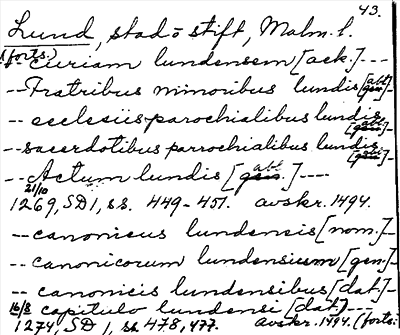 43.
Lund, stad o stift, Malm. l.
(forts.)
-- curiam lundensem [ack.] ---
-- Fratribus minoribus lundis [abl] --
-- ecclesiis parochialibus lundis [abl.]
-- sacerdotibus parrochialibus lundis [abl.]
-- Actum lundis [abl.] ----
21/10 1269, SD 1, ss. 449-451. avskr. 1494.
-- canonicus lundensis [nom.] --
-- canonicorum lundensium [gen] --
-- canonicis lundensibus [dat] --
-- capitulo lundensi [dat] ---
16/8 1274, SD 1, ss 478, 477. avskr. 1494. (forts.